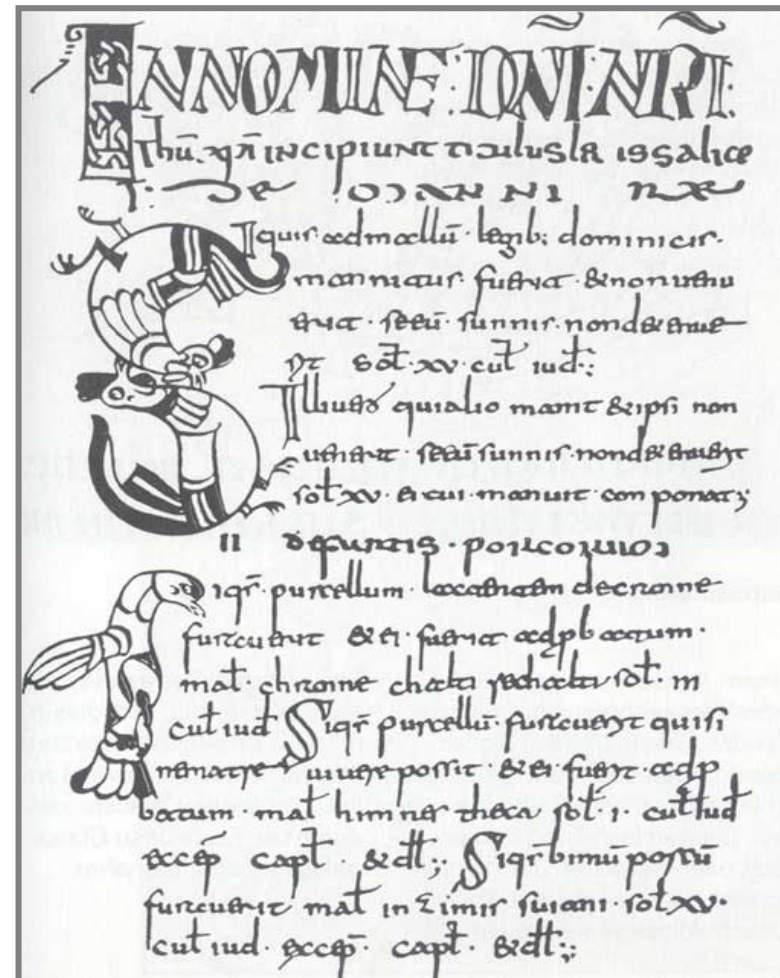 IN NOMINE · DN̄I · NR̄I ·
Ihū · xp̄i INCIPIUNT TITULUS is salice
I · De
Siquis ad mallū · legib; dominicis ·
mannitus · fuerit · & non uenu
erit · seeū · sunnis · non detenue
rit sol̄ · xv · cul̄ iud̄ ·;
Ille uero qui alio manit & ipsi non
uenerit · seeū sunnis · non detenuerit
sol̄ · xv · ei cui · manuit conponat;
II de furtis · porcorum
Siqs̄ · purcellum lactantem de cranne
furauerit & ei · fuerit adp̄batum ·
mal̄ chranne chalti rechalti sol̄ · III
cul̄ iud̄ Siqs̄ purcellū · furauerit qui si
ne matre uiuere possit & ei · fuerit adp̄
batum · mal̄ himnes theca sol̄ · I · cul̄ iud̄
excep̄ capl̄ · & dil̄ ·; Siqs̄ bimū porcū
furauerit mal̄ in zimis suiani · sol̄ xv ·
cul̄ iud · excep̄ · capl̄ · & dil̄ ·;